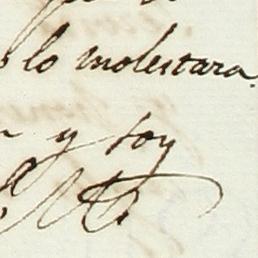 lo molestara.
y soy